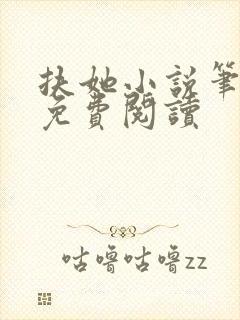 扶她小説筆
免費閱讀
咕嚕咕嚕zz